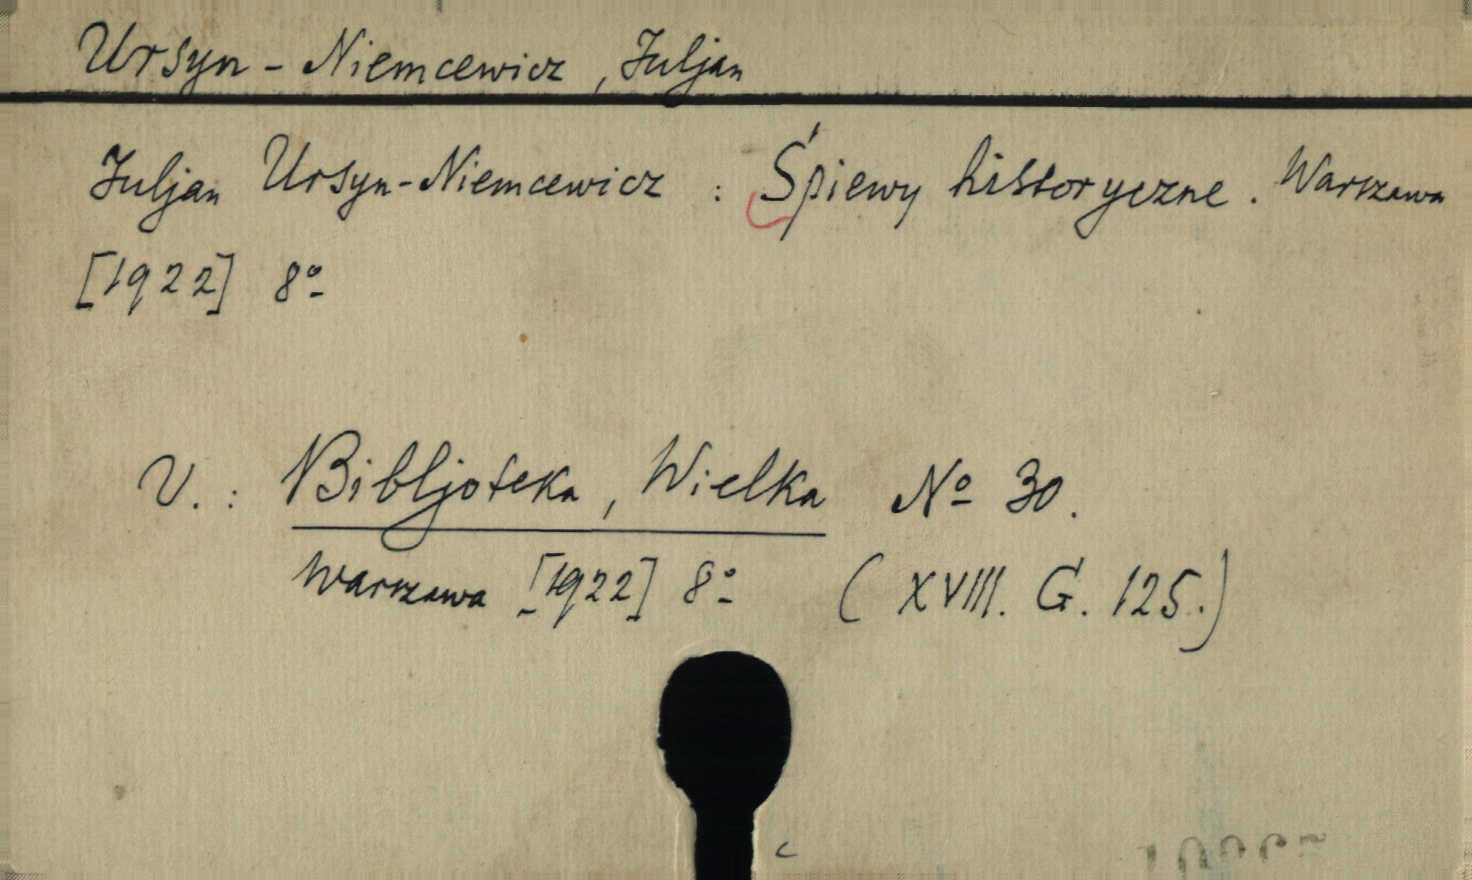 Ursyn-Niemcewicz, Juljan
Juljan Ursyn-Niemcewicz : Śpiewy historyczne. Warszawa
[1922] 8º
V. : Bibljoteka, Wielka Nº 30.
Warszawa [1922] 8º (XVIII. G. 125.)